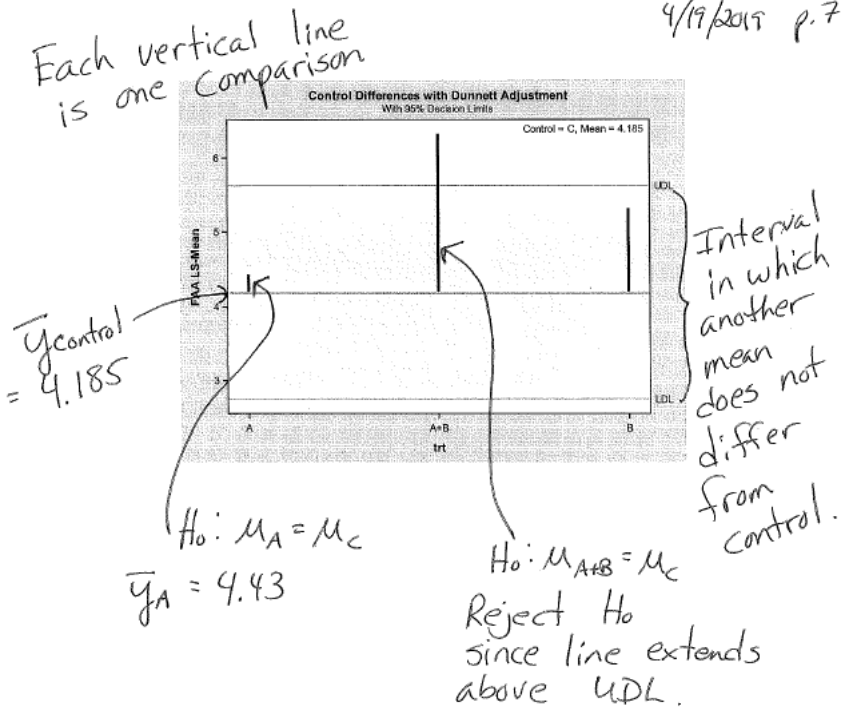 4/19/2019 p. 7
Each vertical line
is one comparison
Control Differences with Dunnett Adjustment
With 95% Decision Limits
Control = C, Mean = 4.185
6
5
4
3
FAA LS-Mean
UDL
LDL
A
A+B
B
trt
ȳcontrol
= 4.185
Interval
in which
another
mean
does not
differ
from
control.
H₀: μ_A = μ_C
ȳ_A = 4.43
H₀: μ_A+B = μ_C
Reject H₀
since line extends
above UDL.